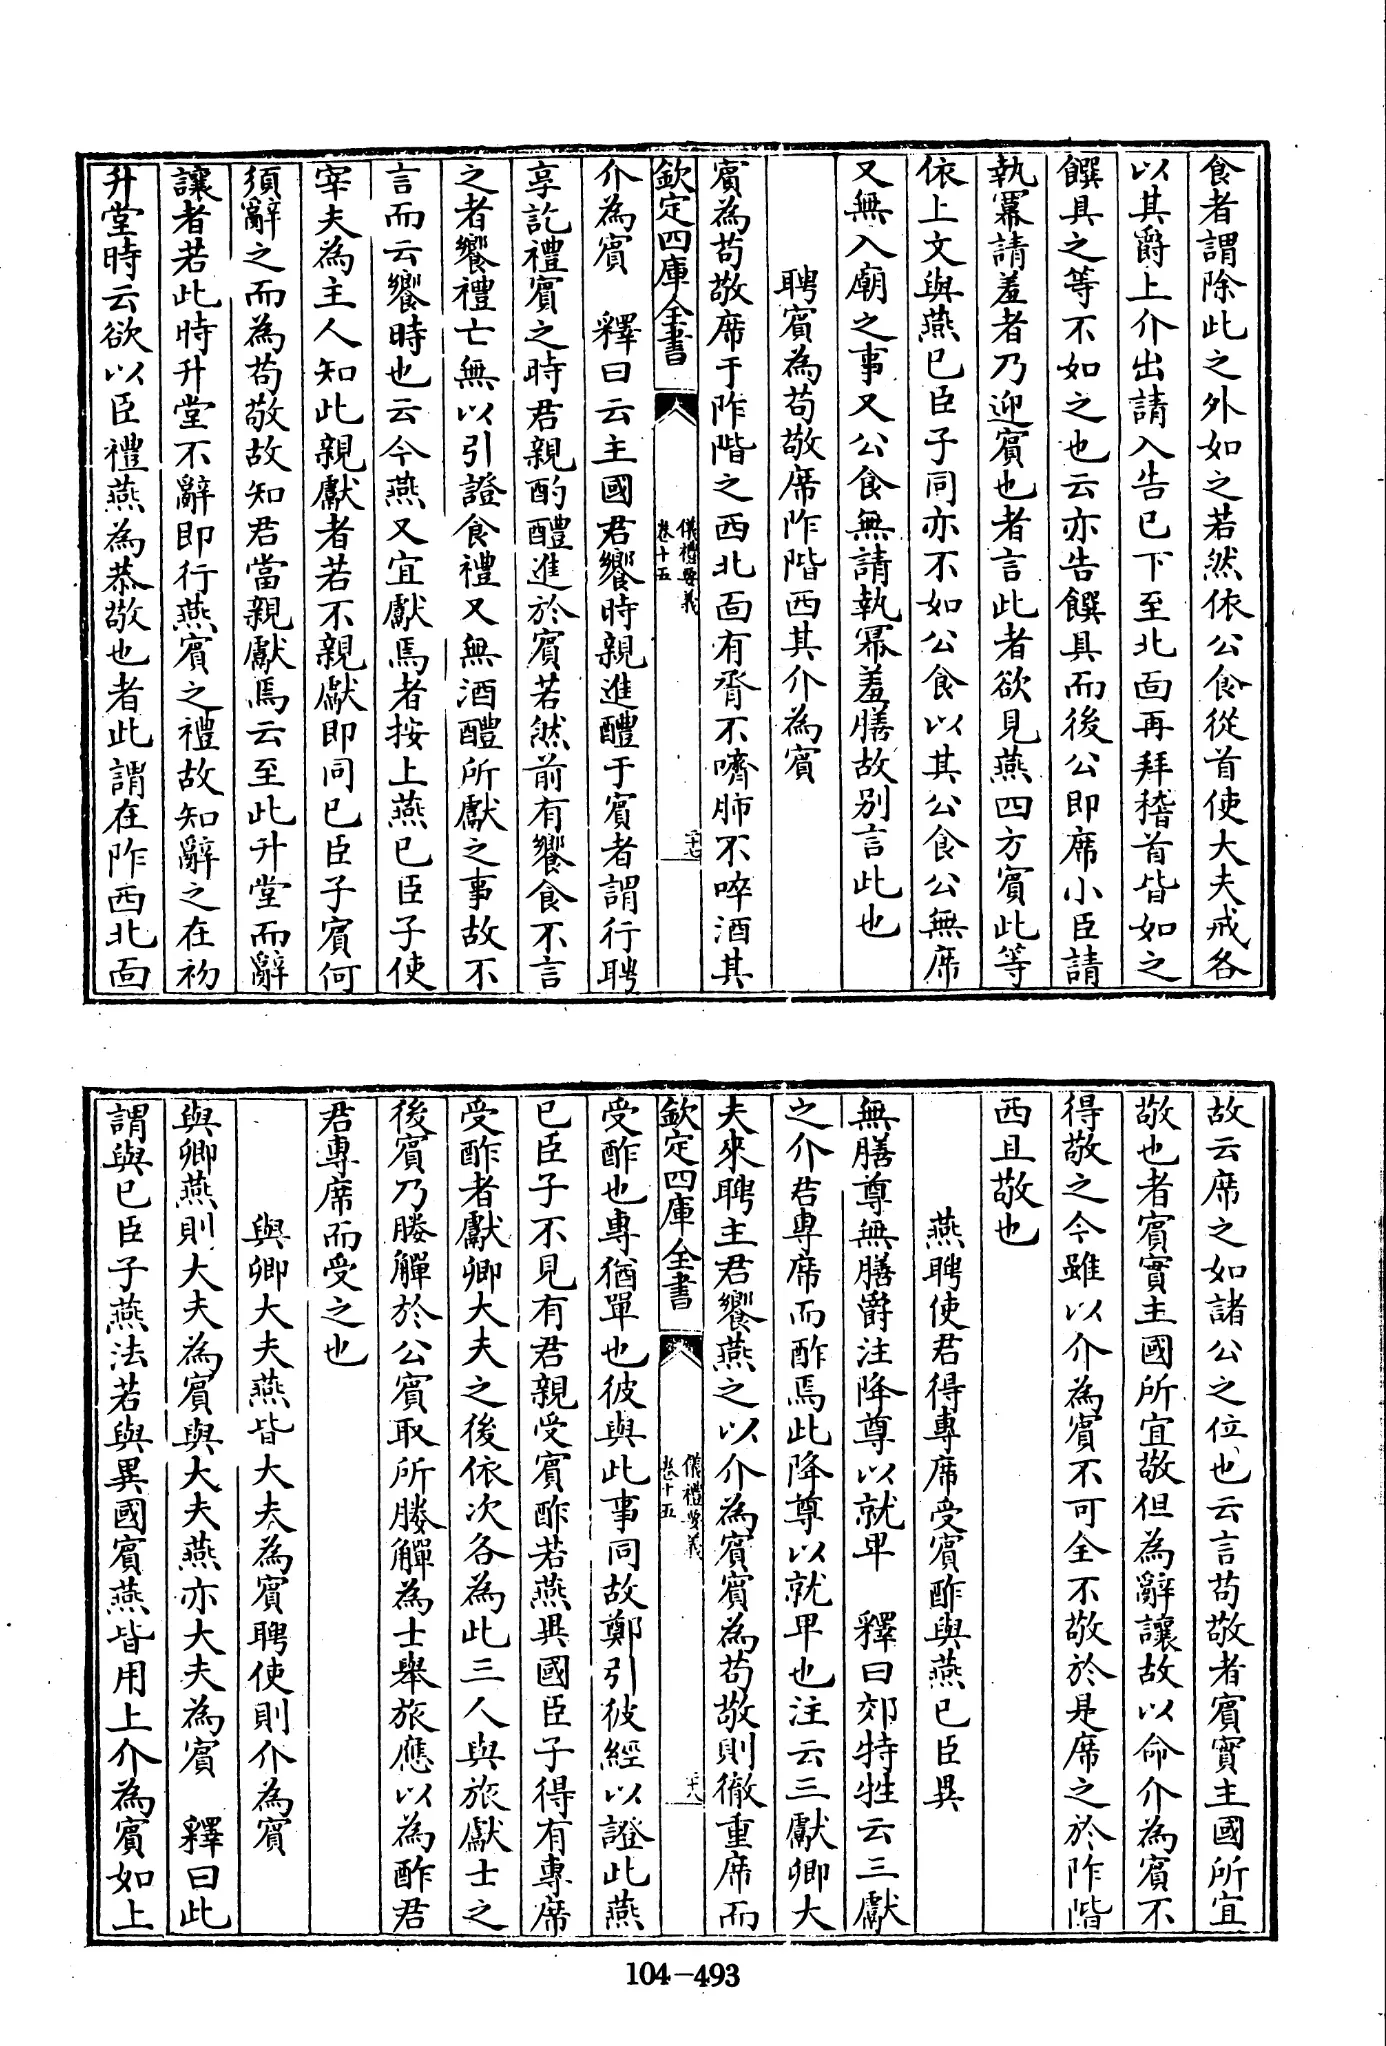 食者謂除此之外如之若然依公食從首使大夫戒各
以其爵上介出請入告已下至北面再拜稽首皆如之
饌具之等不如之也云亦告饌具而後公即席小臣請
執冪請羞者乃迎賓也者言此者欲見燕四方賓此等
依上文與燕已臣子同亦不如公食以其公食公無席
又無入廟之事又公食無請執冪羞膳故別言此也
聘賓為苟敬席阼階西其介為賓
賓為苟敬席于阼階之西北面有脀不嚌肺不啐酒其
欽定四庫全書
儀禮要義
卷十五
二十七
介為賓　釋曰云主國君饗時親進醴于賓者謂行聘
享訖禮賓之時君親酌醴進於賓若然前有饗食不言
之者饗禮亡無以引證食禮又無酒醴所獻之事故不
言而云饗時也云今燕又宜獻焉者按上燕已臣子使
宰夫為主人知此親獻者若不親獻即同已臣子賓何
須辭之而為苟敬故知君當親獻焉云至此升堂而辭
讓者若此時升堂不辭即行燕賓之禮故知辭之在初
升堂時云欲以臣禮燕為恭敬也者此謂在阼西北面
故云席之如諸公之位也云言苟敬者賓實主國所宜
敬也者賓實主國所宜敬但為辭讓故以命介為賓不
得敬之今雖以介為賓不可全不敬於是席之於阼階
西且敬也
燕聘使君得專席受賓酢與燕已臣異
無膳尊無膳爵注降尊以就卑　釋曰郊特牲云三獻
之介君專席而酢焉此降尊以就卑也注云三獻卿大
夫來聘主君饗燕之以介為賓賓為苟敬則徹重席而
欽定四庫全書
儀禮要義
卷十五
二十八
受酢也專猶單也彼與此事同故鄭引彼經以證此燕
已臣子不見有君親受賓酢若燕異國臣子得有專席
受酢者獻卿大夫之後依次各為此三人與旅獻士之
後賓乃媵觶於公賓取所媵觶為士舉旅應以為酢君
君專席而受之也
與卿大夫燕皆大夫為賓聘使則介為賓
與卿燕則大夫為賓與大夫燕亦大夫為賓　釋曰此
謂與已臣子燕法若與異國賓燕皆用上介為賓如上
104-493